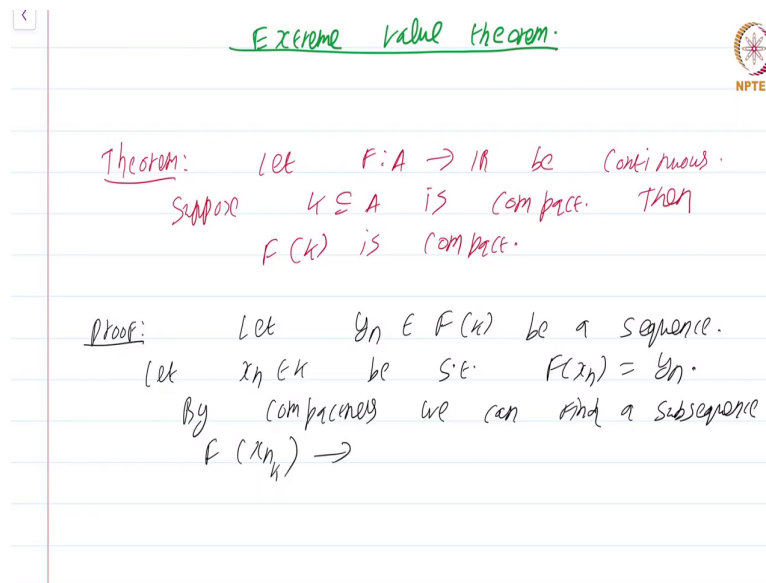 Extreme value theorem.
NPTE
Theorem: Let F: A → IR be continuous.
Suppose K ⊆ A is compact. Then
F(K) is compact.
Proof: Let yₙ ∈ F(K) be a sequence.
Let xₙ ∈ K be s.t. F(xₙ) = yₙ.
By compactness we can find a subsequence
F(xₙₖ) →